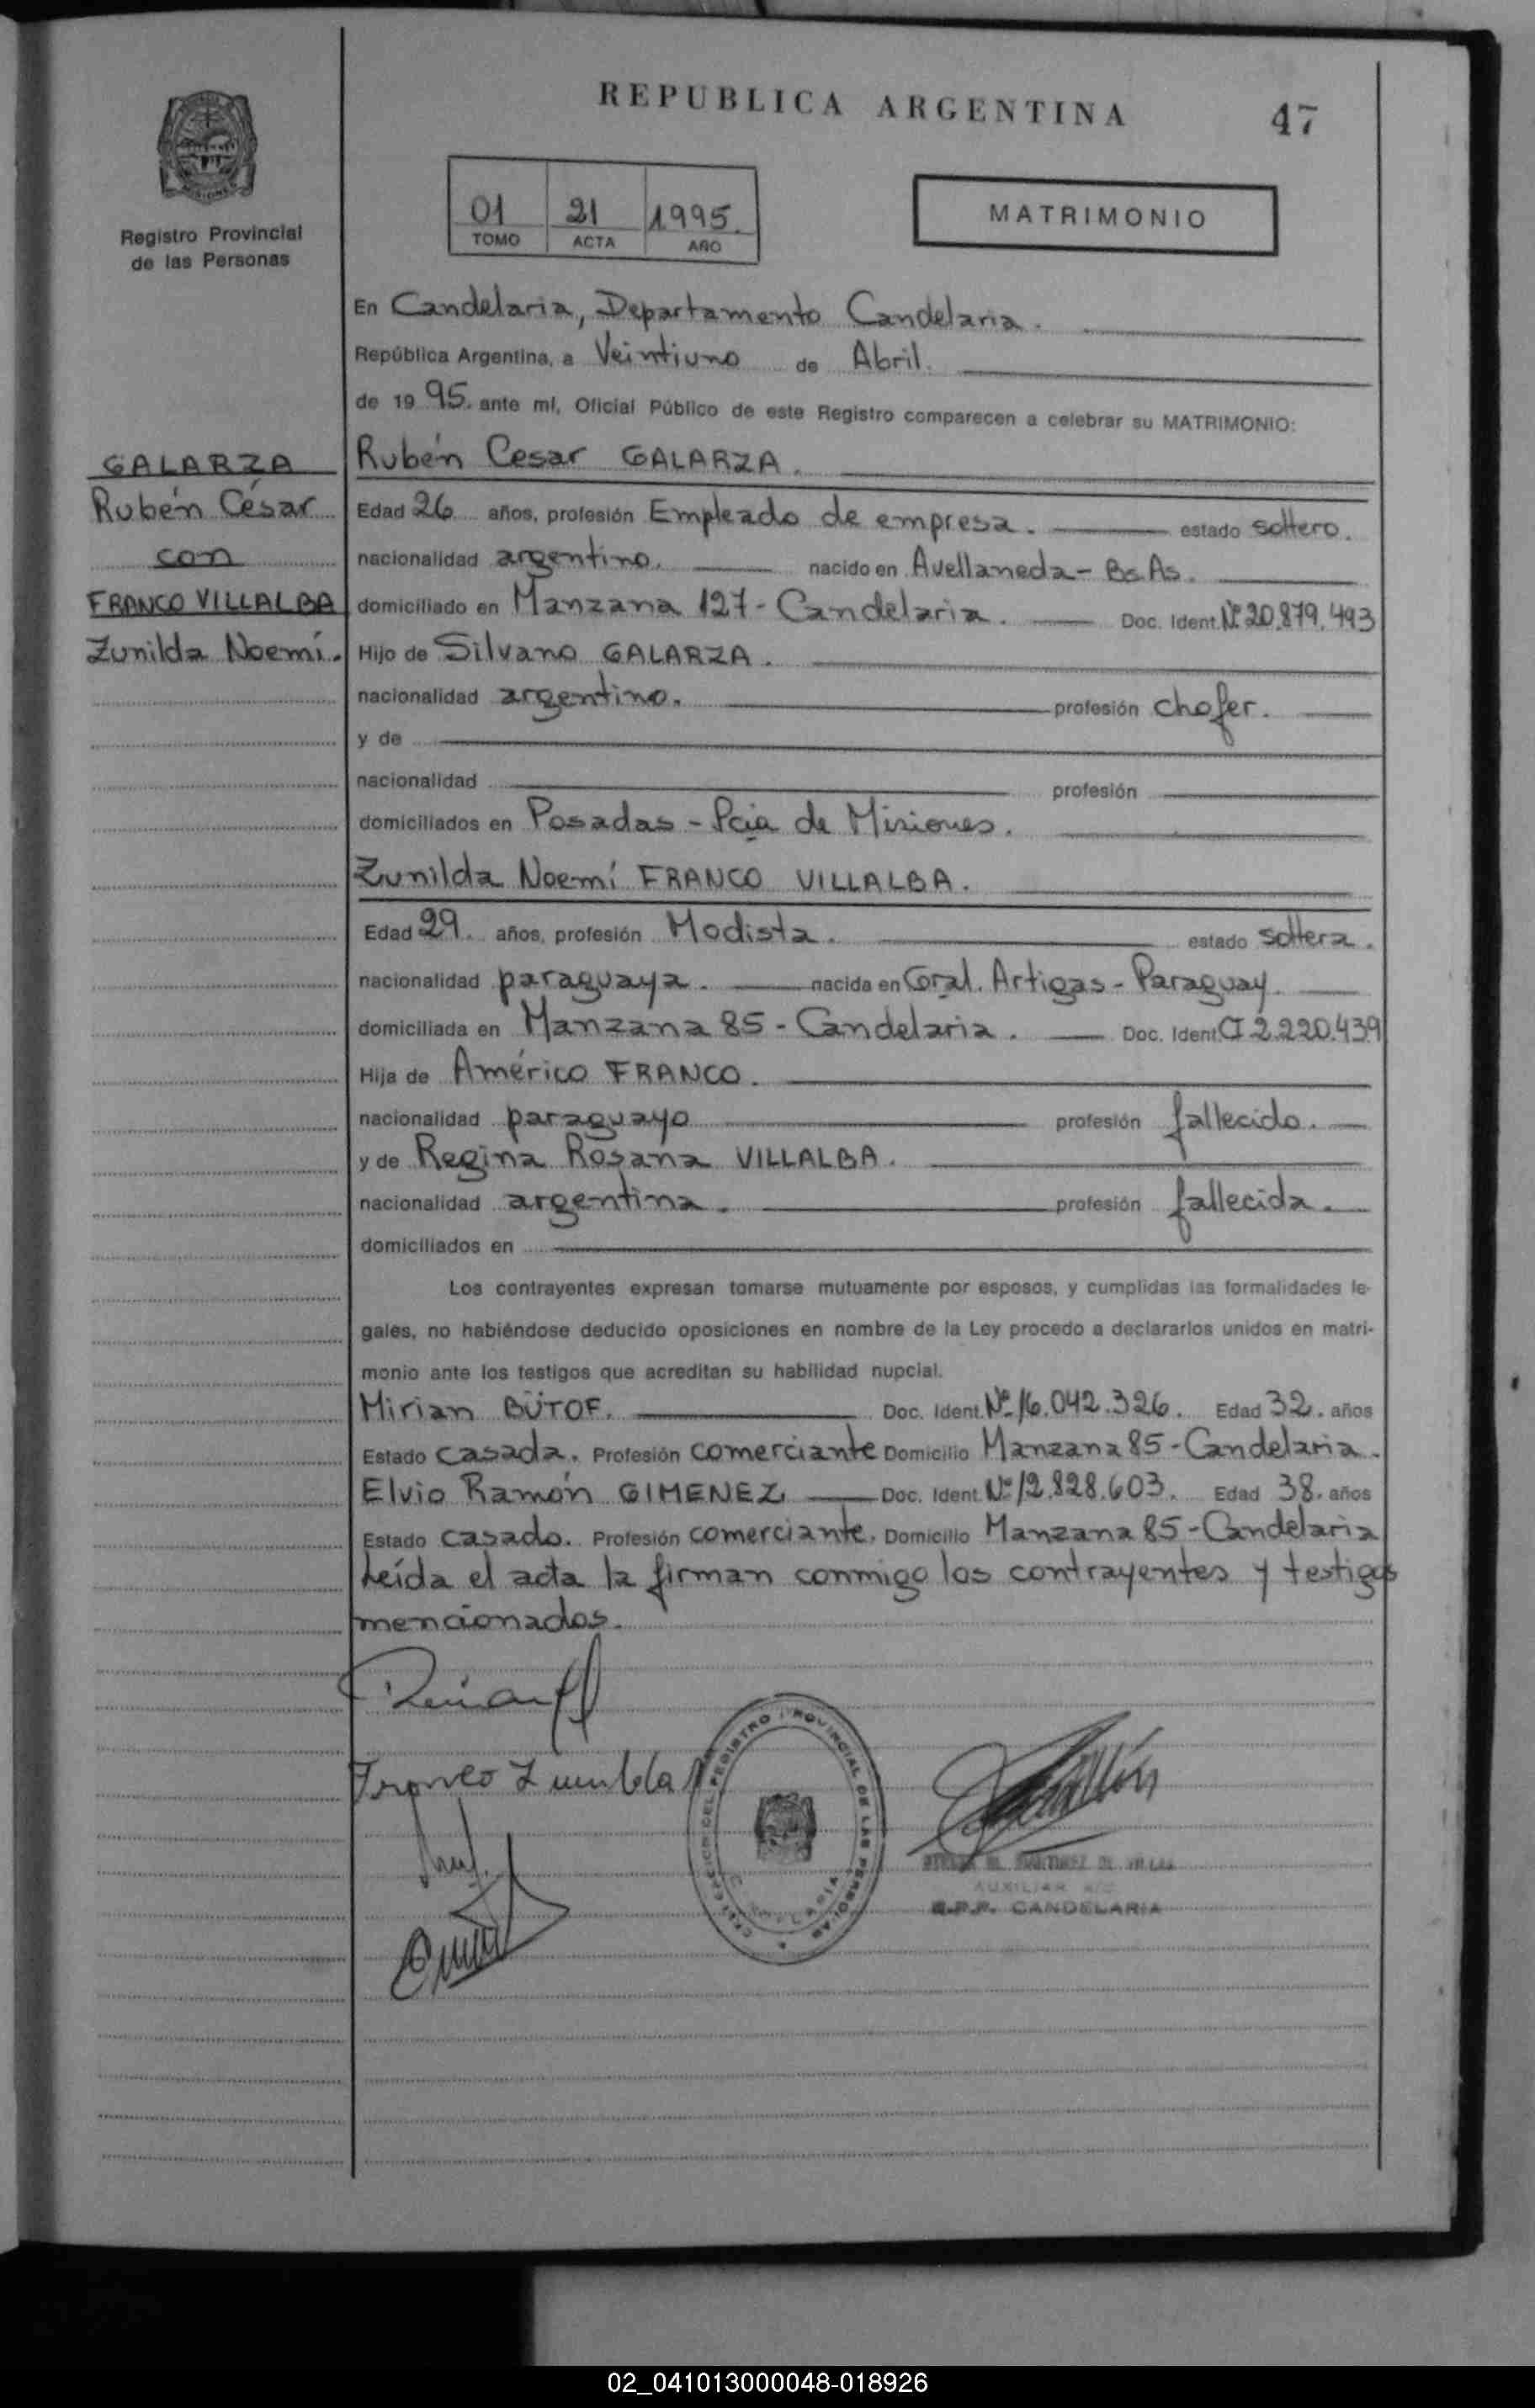 REPUBLICA ARGENTINA
47
Registro Provincial
de las Personas
01 21 1995.
TOMO ACTA AÑO
MATRIMONIO
En Candelaria, Departamento Candelaria.
República Argentina, a Veintiuno de Abril.
de 19 95. ante mí, Oficial Público de este Registro comparecen a celebrar su MATRIMONIO:
GALARZA
Rubén César
con
FRANCO VILLALBA
Zunilda Noemí.
Rubén Cesar GALARZA.
Edad 26 años, profesión Empleado de empresa. estado soltero.
nacionalidad argentino. nacido en Avellaneda - Bs. As.
domiciliado en Manzana 127 - Candelaria. Doc. Ident. Nº 20.879.493
Hijo de Silvano GALARZA.
nacionalidad argentino. profesión chofer.
y de
nacionalidad profesión
domiciliados en Posadas - Pcia de Misiones.
Zunilda Noemí FRANCO VILLALBA.
Edad 29. años, profesión Modista. estado soltera.
nacionalidad paraguaya. nacida en Gral. Artigas - Paraguay.
domiciliada en Manzana 85 - Candelaria. Doc. Ident. CI 2.220.439
Hija de Américo FRANCO.
nacionalidad paraguayo profesión fallecido.
y de Regina Rosana VILLALBA.
nacionalidad argentina. profesión fallecida.
domiciliados en
Los contrayentes expresan tomarse mutuamente por esposos, y cumplidas las formalidades le-
gales, no habiéndose deducido oposiciones en nombre de la Ley procedo a declararlos unidos en matri-
monio ante los testigos que acreditan su habilidad nupcial.
Mirian BÜTOF. Doc. Ident. Nº 16.042.326. Edad 32. años
Estado casada. Profesión comerciante Domicilio Manzana 85 - Candelaria.
Elvio Ramón GIMENEZ Doc. Ident. Nº 12.828.603. Edad 38. años
Estado casado. Profesión comerciante. Domicilio Manzana 85 - Candelaria
Leída el acta la firman conmigo los contrayentes y testigos
mencionados.
Franco Zunilda
DEL REGISTRO PROVINCIAL DE LAS PERSONAS
CANDELARIA
MARTINEZ DE
AUXILIAR
R.P.P. CANDELARIA
02_041013000048-018926